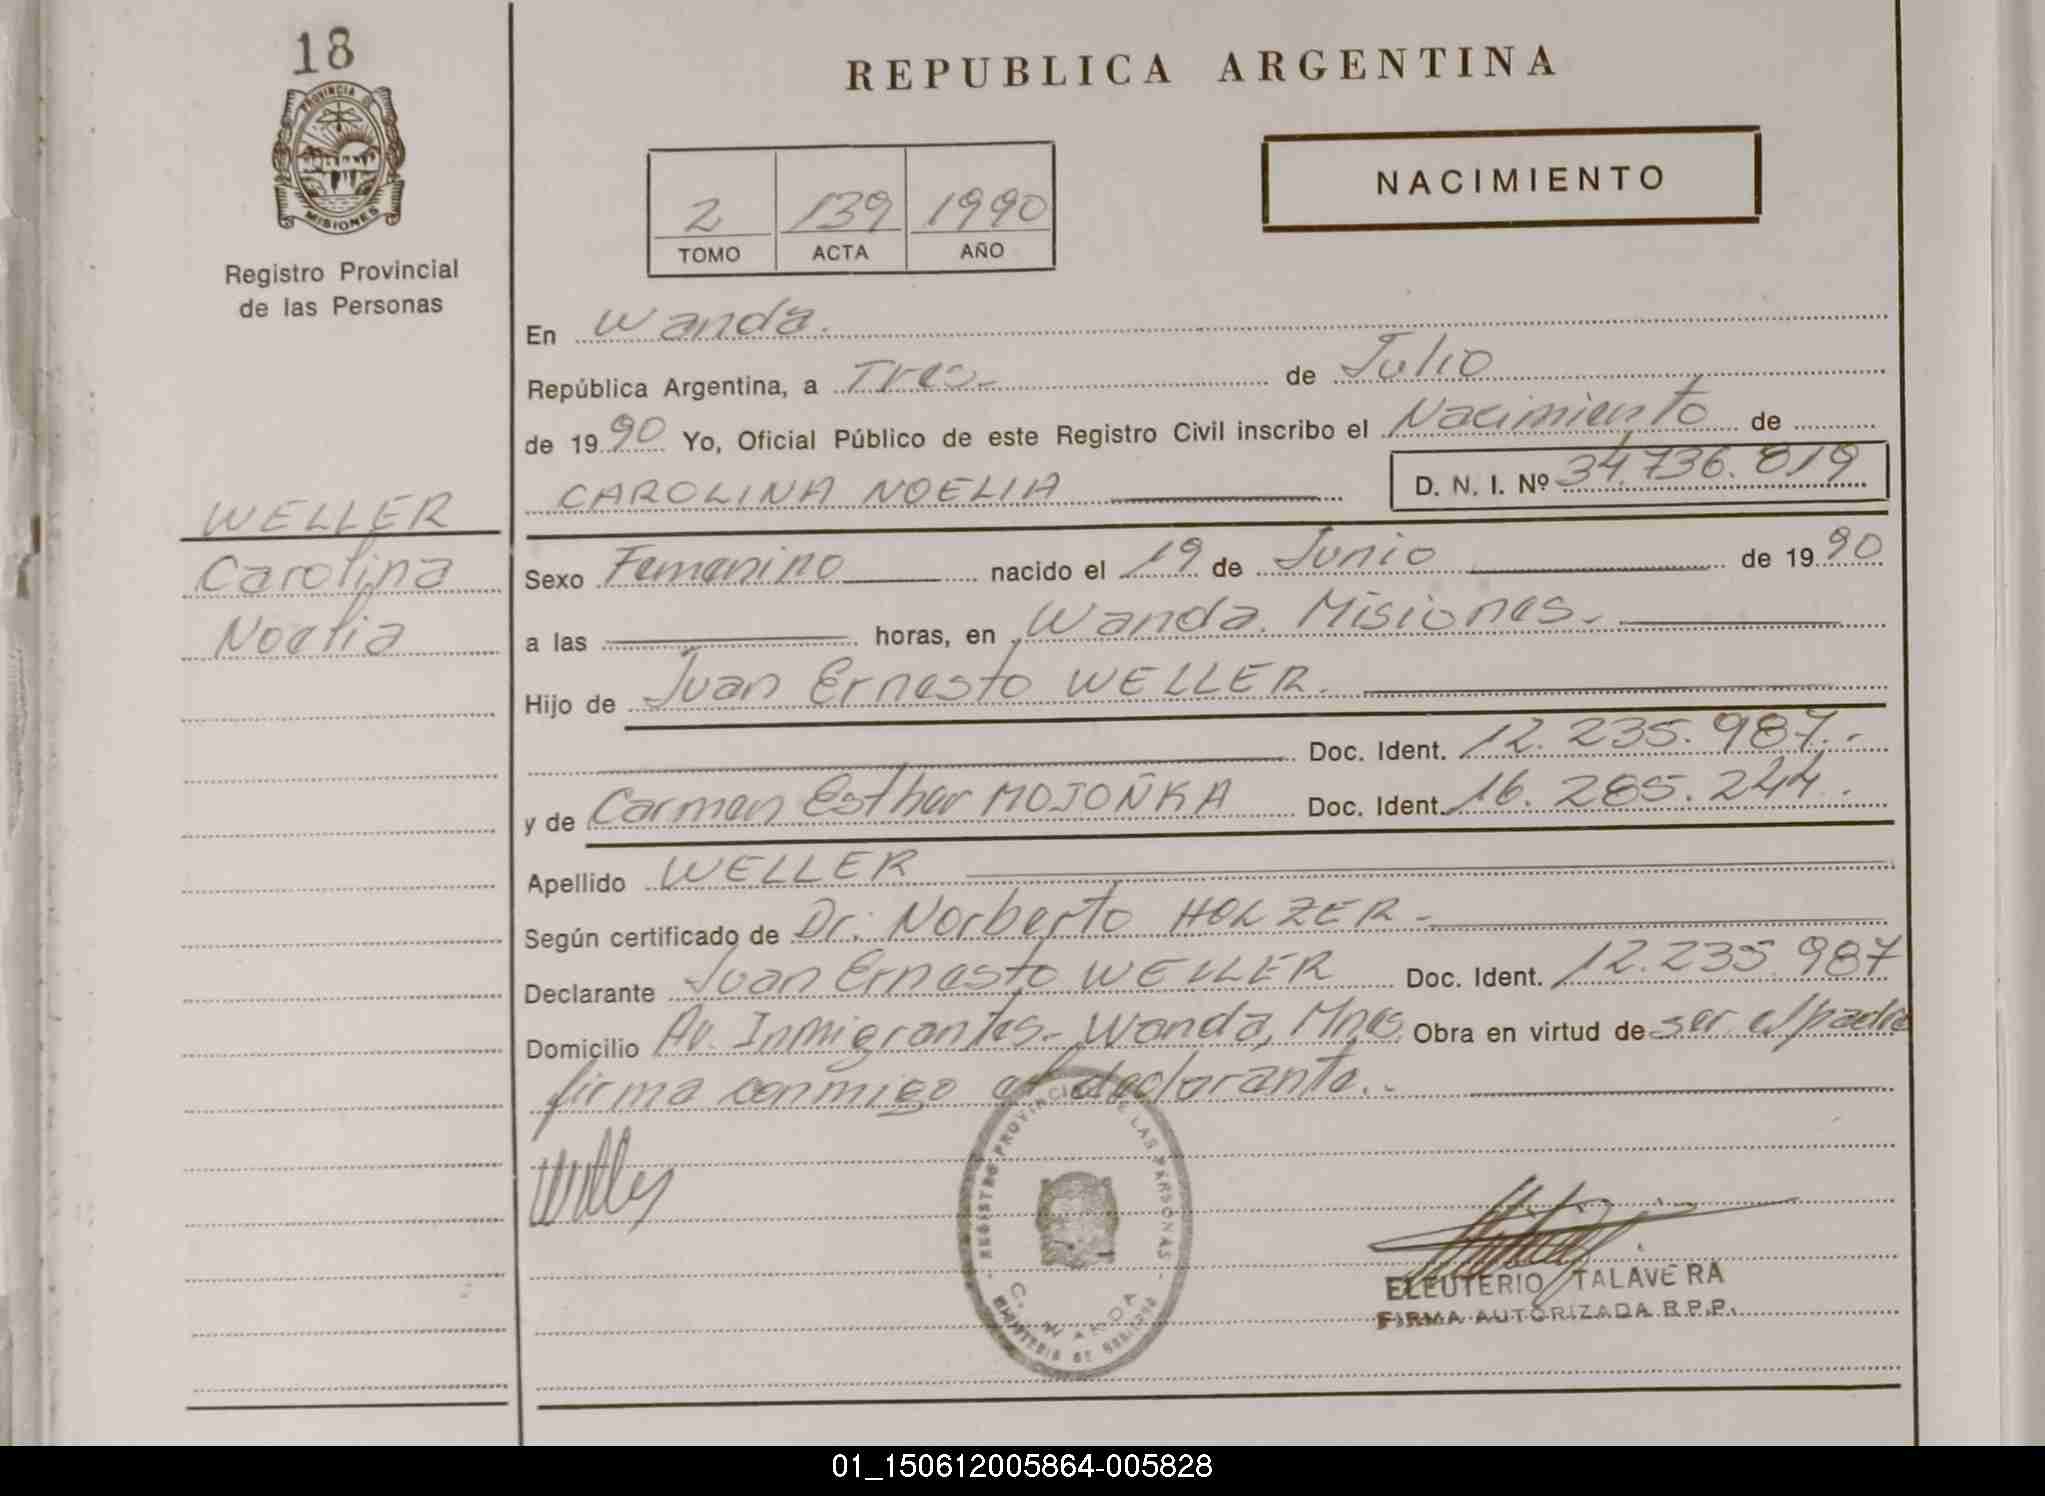 18
REPUBLICA ARGENTINA
PROVINCIA DE
MISIONES
Registro Provincial
de las Personas
NACIMIENTO
2 139 1990
TOMO ACTA AÑO
En Wanda.
República Argentina, a Tres.- de Julio
de 1990 Yo, Oficial Público de este Registro Civil inscribo el Nacimiento de
CAROLINA NOELIA D. N. I. Nº 34.736.819
WELLER
Carolina
Noelia
Sexo Femenino nacido el 19 de Junio de 1990
a las horas, en Wanda. Misiones.-
Hijo de Juan Ernesto WELLER.
Doc. Ident. 12.235.987.-
y de Carmen Esther MOJOÑKA Doc. Ident. 16.285.244.
Apellido WELLER
Según certificado de Dr. Norberto HOLZER.-
Declarante Juan Ernesto WELLER Doc. Ident. 12.235.987
Domicilio Av. Inmigrantes.- Wanda, Mnes. Obra en virtud de ser el padre
firma conmigo el declarante.-
REGISTRO PROVINCIAL DE LAS PERSONAS
C. WANDA
MINISTERIO DE GOBIERNO
ELEUTERIO TALAVERA
FIRMA AUTORIZADA R.P.P.
01_150612005864-005828